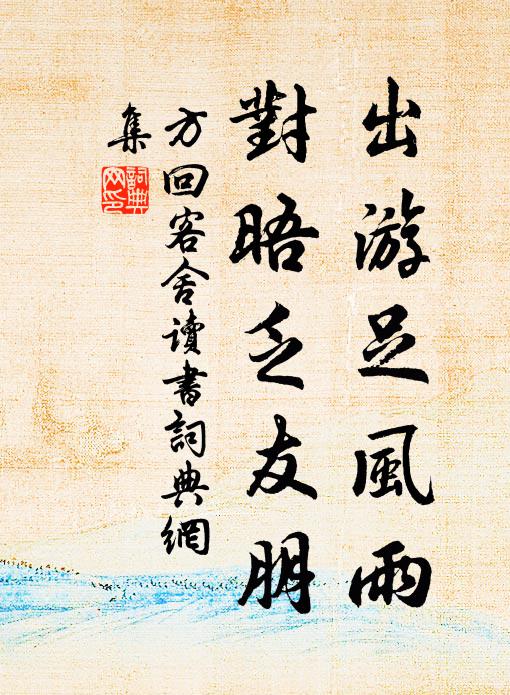 出游足風雨
對晤乏友朋
方回客舍讀書詞典網
集
詞典網印